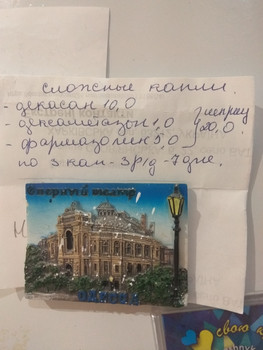 сложные капли.
- декасан 10,0
- дексаметазон 1,0
- фармазолин 5,0
20,0.
по 3 кап - 3 р/д - 7 дне.
ОДЕССА
свою